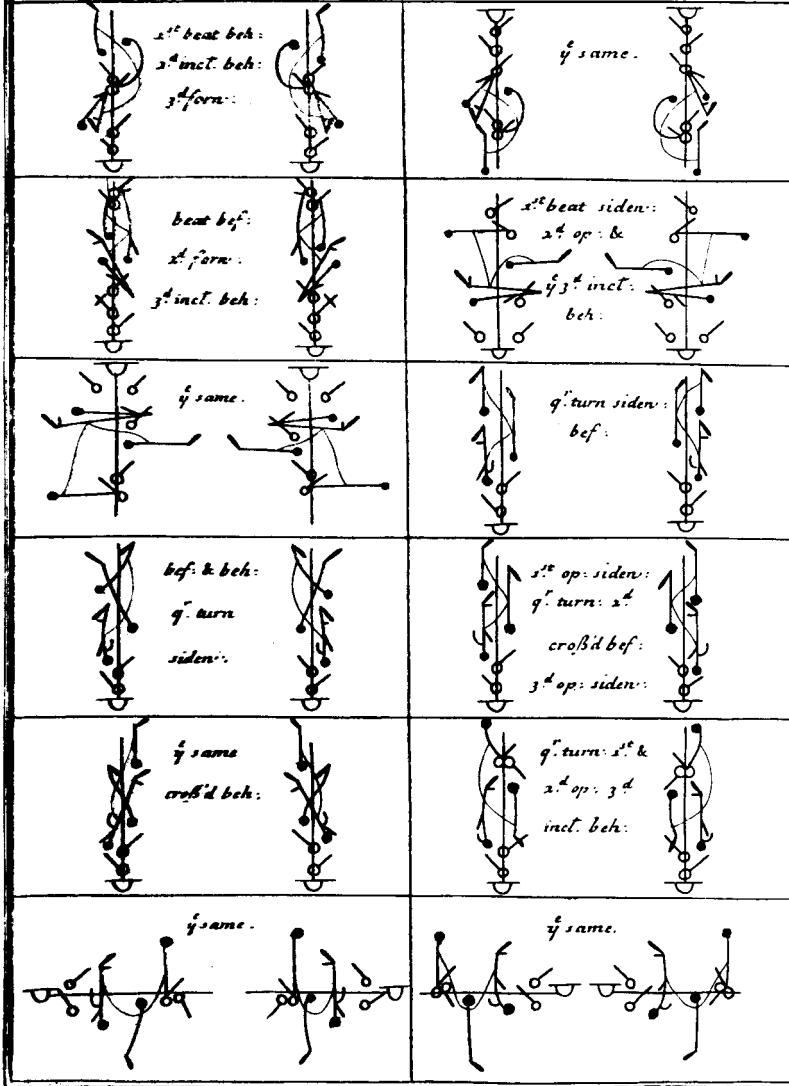 1st beat beh:
2d inct. beh:
3d forn:
ye same.
beat bef:
2d forn:
3d inct. beh:
1st beat siden:
2d op: &
ye 3d inct:
beh:
ye same.
qr turn siden:
bef:
bef: & beh:
qr turn
siden:
1st op: siden:
qr turn: 2d
croß'd bef:
3d op: siden:
ye same
croß'd beh:
qr turn: 1st &
2d op: 3d
inct. beh:
ye same.
ye same.